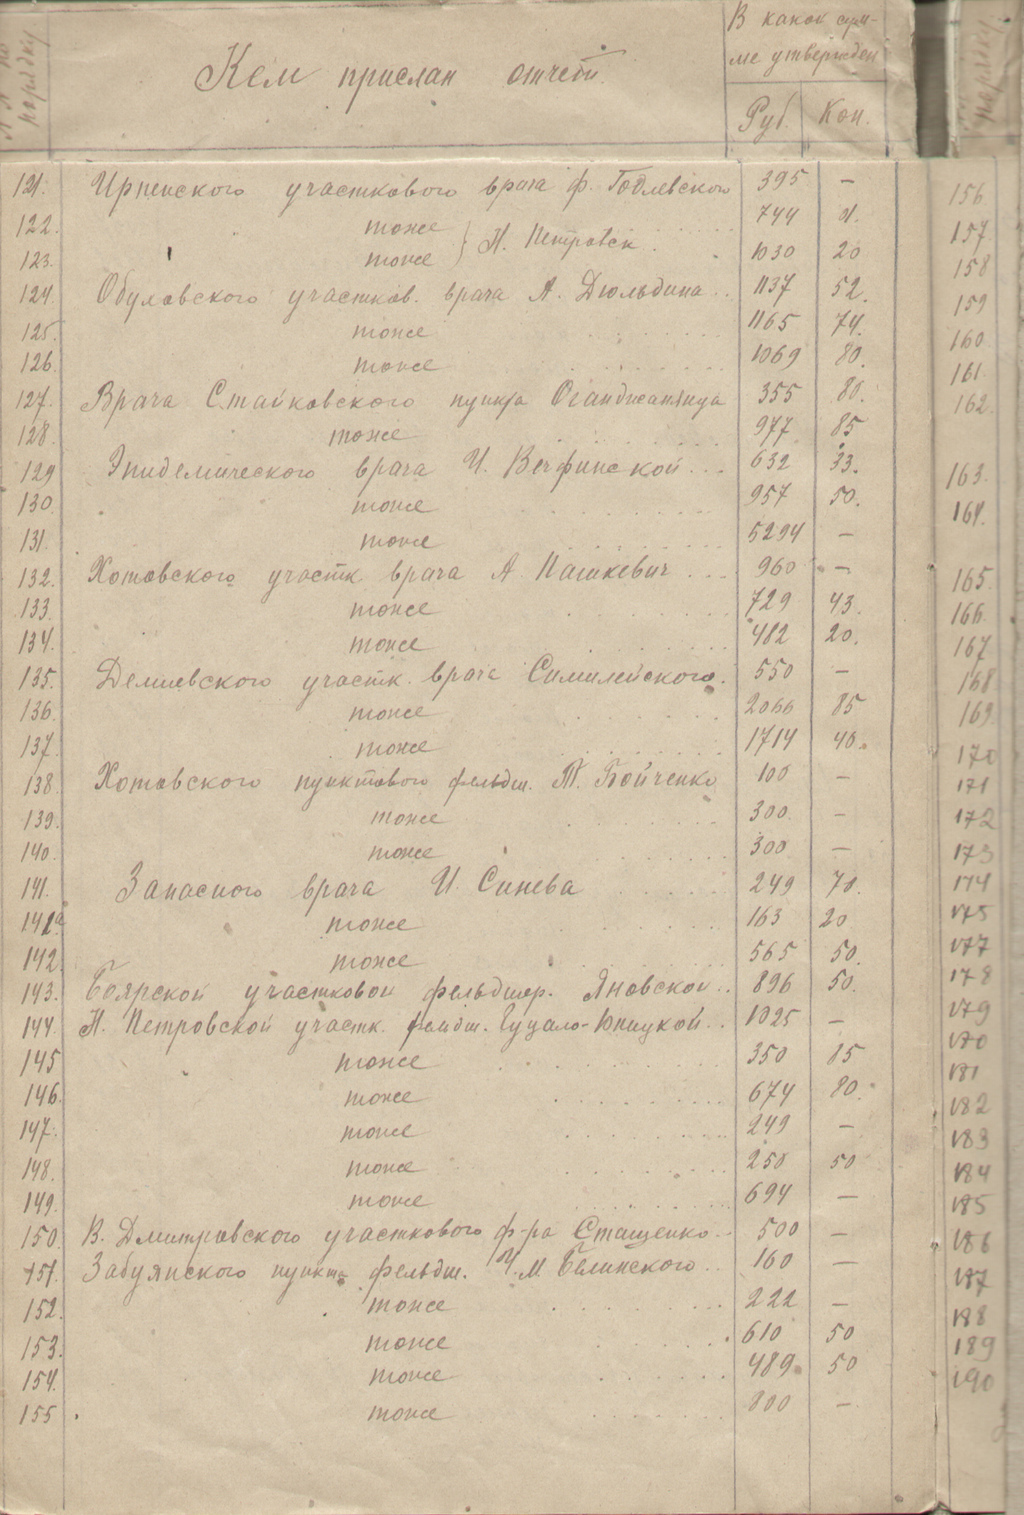 № № по порядку
Кем прислан отчет
В какой сум-
ме утвержден
Руб. Коп.
121. Ирпенского участкового врача ф. Годлевского 395 —
122. тоже 744
123. тоже } Н. Петровск. 1030 20
124. участков. врача А. Дюльдина.. 1137 52.
125. тоже 1165 74.
126. тоже 1069 80.
127. Врача Стайковского пункта Оганджанянца 355 80.
128. тоже 977 85
129 Эпидемического врача И. ... 632 33.
130. тоже 957 50.
131. тоже 5294 —
132. Хотовского участк. врача А. Пашкевич ... 960 —
133. тоже 729 43.
134. тоже 482 20.
135. Демиевского участк. врача 550 —
136. тоже 2066 85
137. тоже 1714 40.
138. Хотовского пунктового фельдш. Т. Бойченко 100 —
139. тоже 300 —
140. тоже 300 —
141. Запасного врача И. Синева 249 70.
141а тоже 163 20
142. тоже 565 50.
143. Боярской участковой фельдшер. Яновской.. 896 50.
144. Н. Петровской участк. фельдш. Гуцало-Юницкой.. 1025 —
145 тоже 350 85
146. тоже 674 80.
147. тоже 249 —
148. тоже 250 50
149. тоже 694 —
150. В. Дмитровского участкового ф-ра Стащенко.. 500 —
151. Забуянского пункт. фельдш. И.М. Белинского.. 160 —
152. тоже 222 —
153. тоже 610 50
154. тоже 489 50
155 тоже 800 —
порядку
156.
157
158
159
160.
161.
162.
163.
164.
165.
166.
167
168
169.
170
171
172
173
174
175
177
178
179
181
182
183
184
185
186
187
188
189
190